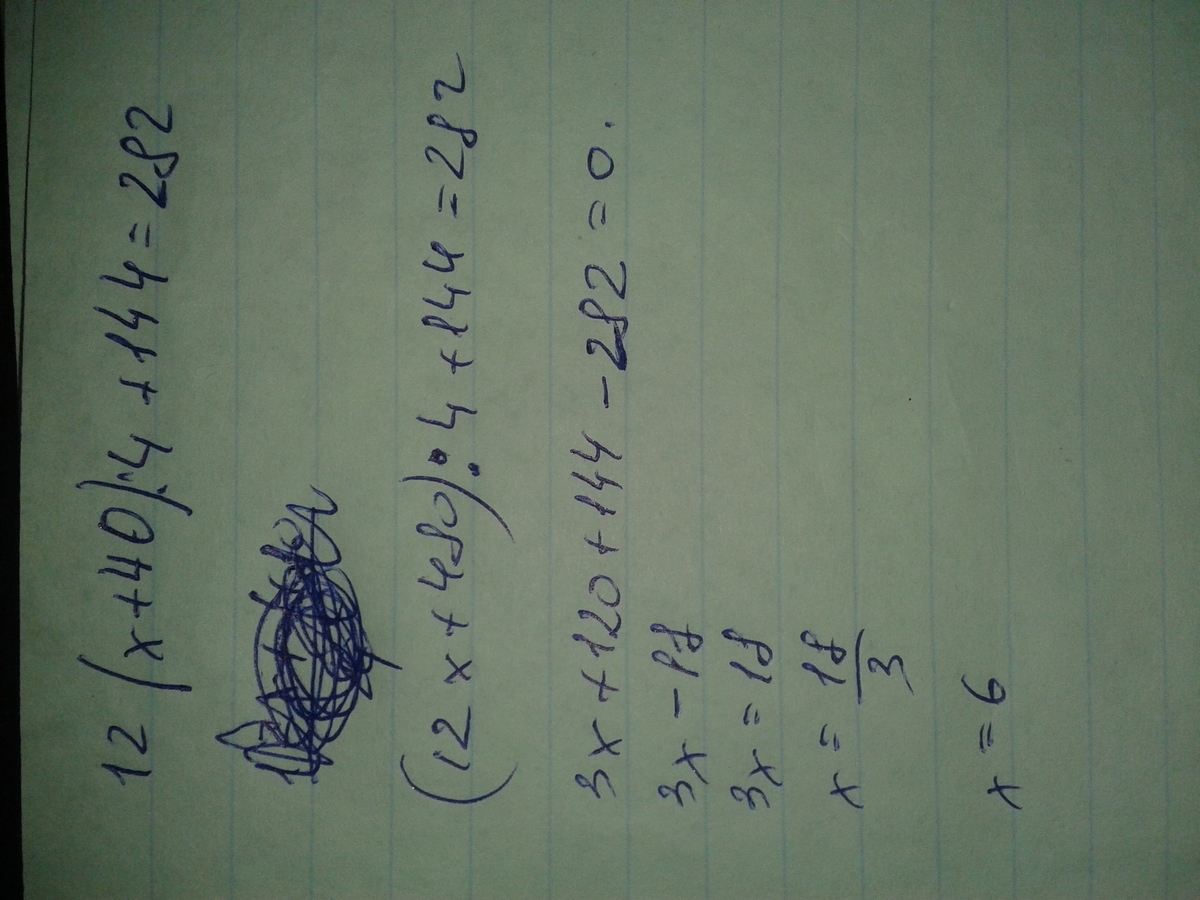 12 (x+40):4+144=282
(12x+480):4+144=282
3x+120+144-282=0.
3x-18
3x=18
x=18/3
x=6